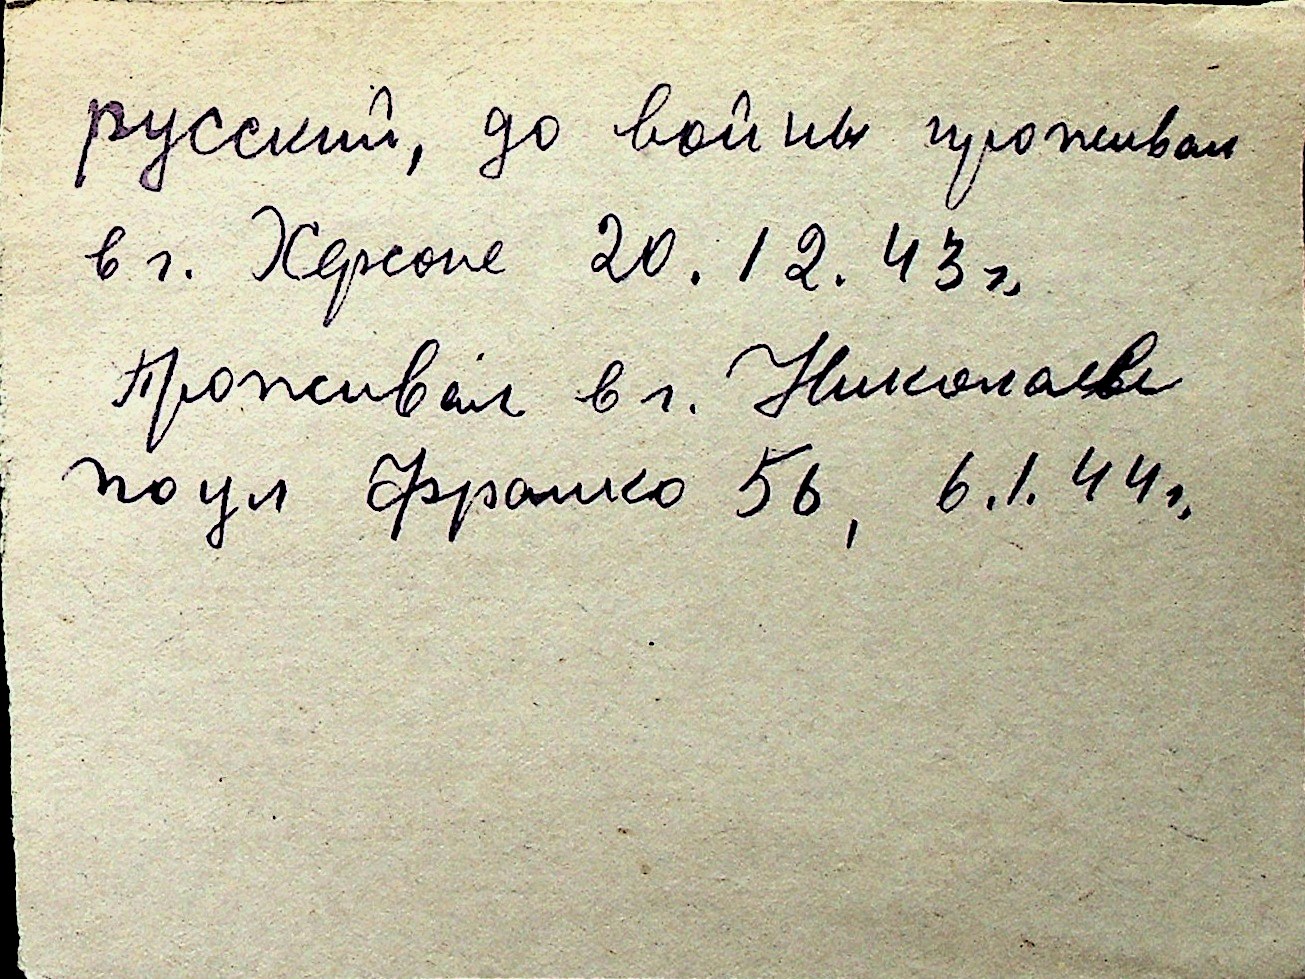 русский, до войны проживал
в г. Херсоне 20.12.43 г.
Проживал в г. Николаеве
по ул Франко 56, 6.1.44 г.